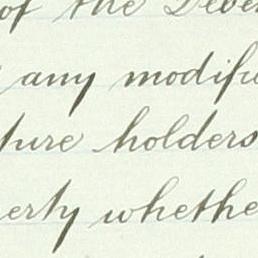 of the Deben
any modifi
ture holders
erty whethe